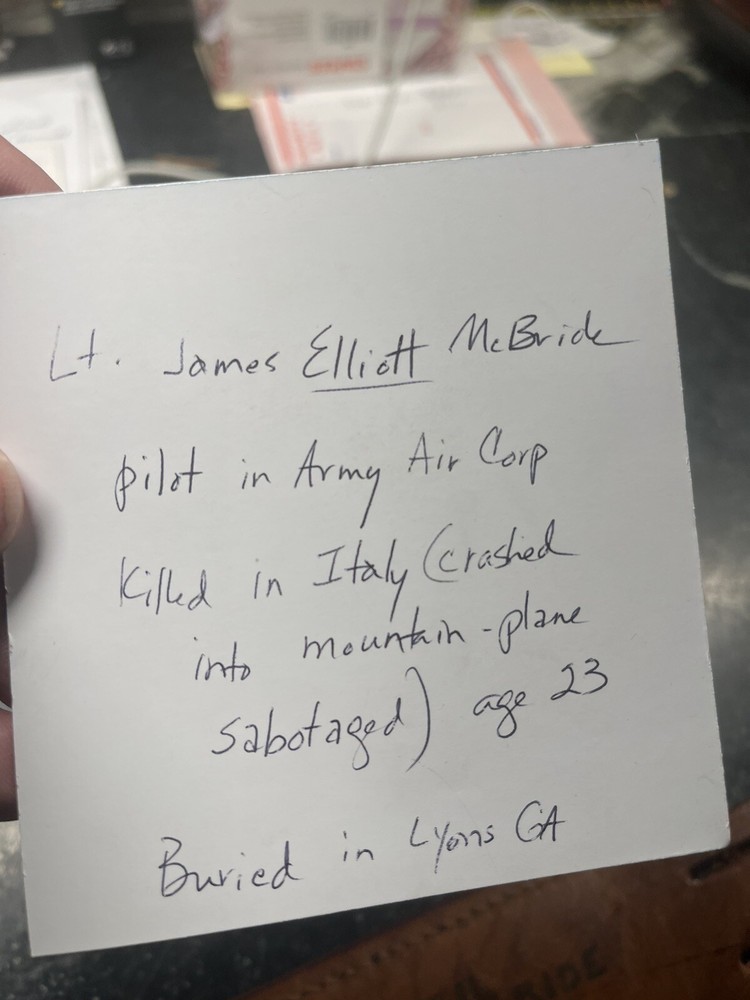 Lt. James Elliott McBride
pilot in Army Air Corp
Killed in Italy (crashed
into mountain-plane
sabotaged) age 23
Buried in Lyons GA